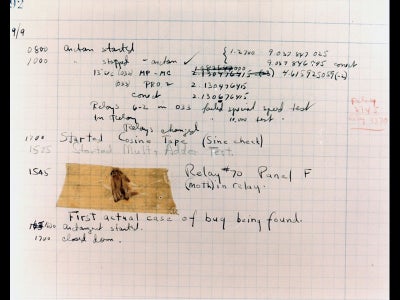 92
9/9
0800 Antan started
1000 " stopped - antan ✓ { 1.2700 9.037 847 025
9.037 846 995 correct
13"uc (032) MP-MC 2.130476415 (-3) 4.615925059(-2)
(033) PRO 2 2.130476415
correct 2.130676415
Relays 6-2 in 033 failed special speed test
In Relay " 11.00 test.
Relays changed
1100 Started Cosine Tape (Sine check)
1525 Started Multi Adder Test.
1545 Relay #70 Panel F
(Moth) in relay.
First actual case of bug being found.
1630 antangent started.
1700 closed down.
Relay
2145
Relay 3370